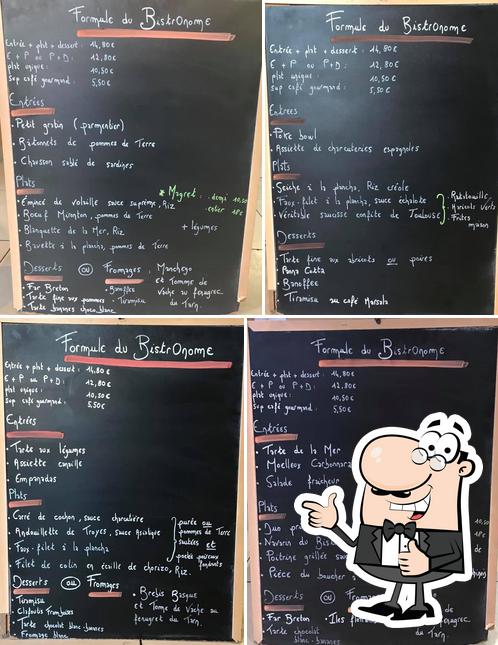 Formule du BistrOnome
Entrée + plat + dessert : 14,80€
E + P ou P+D : 12,80€
plat unique : 10,50€
Sup café gourmand : 5,50€
Entrées
• Petit gratin (parmentier)
• Bâtonnets de pommes de Terre
• Chausson sablé de sardines
Plats
* Magret : demi 10,50
entier 18€
• Emincé de volaille sauce suprême, Riz
• Boeuf Mironton, pommes de Terre
+ légumes
• Blanquette de la Mer, Riz
• Bavette à la plancha, pommes de Terre
Desserts ou Fromages, Manchego
• Far Breton
• Banoffee
et Tomme de
• Tarte fine aux pommes
• Tiramisu
Vache au fenugrec
• Tarte bananes choco blanc
du Tarn.
Formule du BistrOnome
Entrée + plat + dessert : 14,80€
E + P ou P+D : 12,80€
plat unique : 10,50€
Sup café gourmand : 5,50€
Entrées
• Poke bowl
• Assiette de charcuteries espagnoles
Plats
• Seiche à la plancha, Riz créole
• Faux-filet à la plancha, sauce échalote
• Véritable saucisse confite de Toulouse
• Ratatouille
• Haricots verts
• Frites maison
Desserts
• Tarte fine aux abricots ou poires
• Panna Cotta
• Banoffee
• Tiramisu au café Marsala
Formule du BistrOnome
Entrée + plat + dessert : 14,80€
E + P ou P+D : 12,80€
plat unique : 10,50€
Sup café gourmand : 5,50€
Entrées
• Tarte aux légumes
• Assiette
• Empanadas
Plats
• Carré de cochon, sauce charcutière
• Andouillette de Troyes, sauce Asiatique
• Faux-filet à la plancha
• Filet de colin en écaille de chorizo, Riz.
purée ou
pommes de Terre
sautées et
poelée poireaux
Desserts ou Fromages
• Tiramisu
• Brebis Basque
• Clafoutis Framboises
et Tome de Vache au
• Tarte chocolat blanc-bananes
fenugrec du Tarn.
• Fromage blanc
Formule du BistrOnome
Entrée + plat + dessert : 14,80€
E + P ou P+D : 12,80€
plat unique : 10,50€
Sup café gourmand : 5,50€
Entrées
• Tarte de la Mer
• Moelleux Carbonnara
Salade fraîcheur
Plats
• Duo
10,50
• Navarin du
• Poitrine grillée
• Pièce du boucher
Desserts ou
• Far Breton
• Iles
• Tarte chocolat
blanc-bananes
du Tarn.